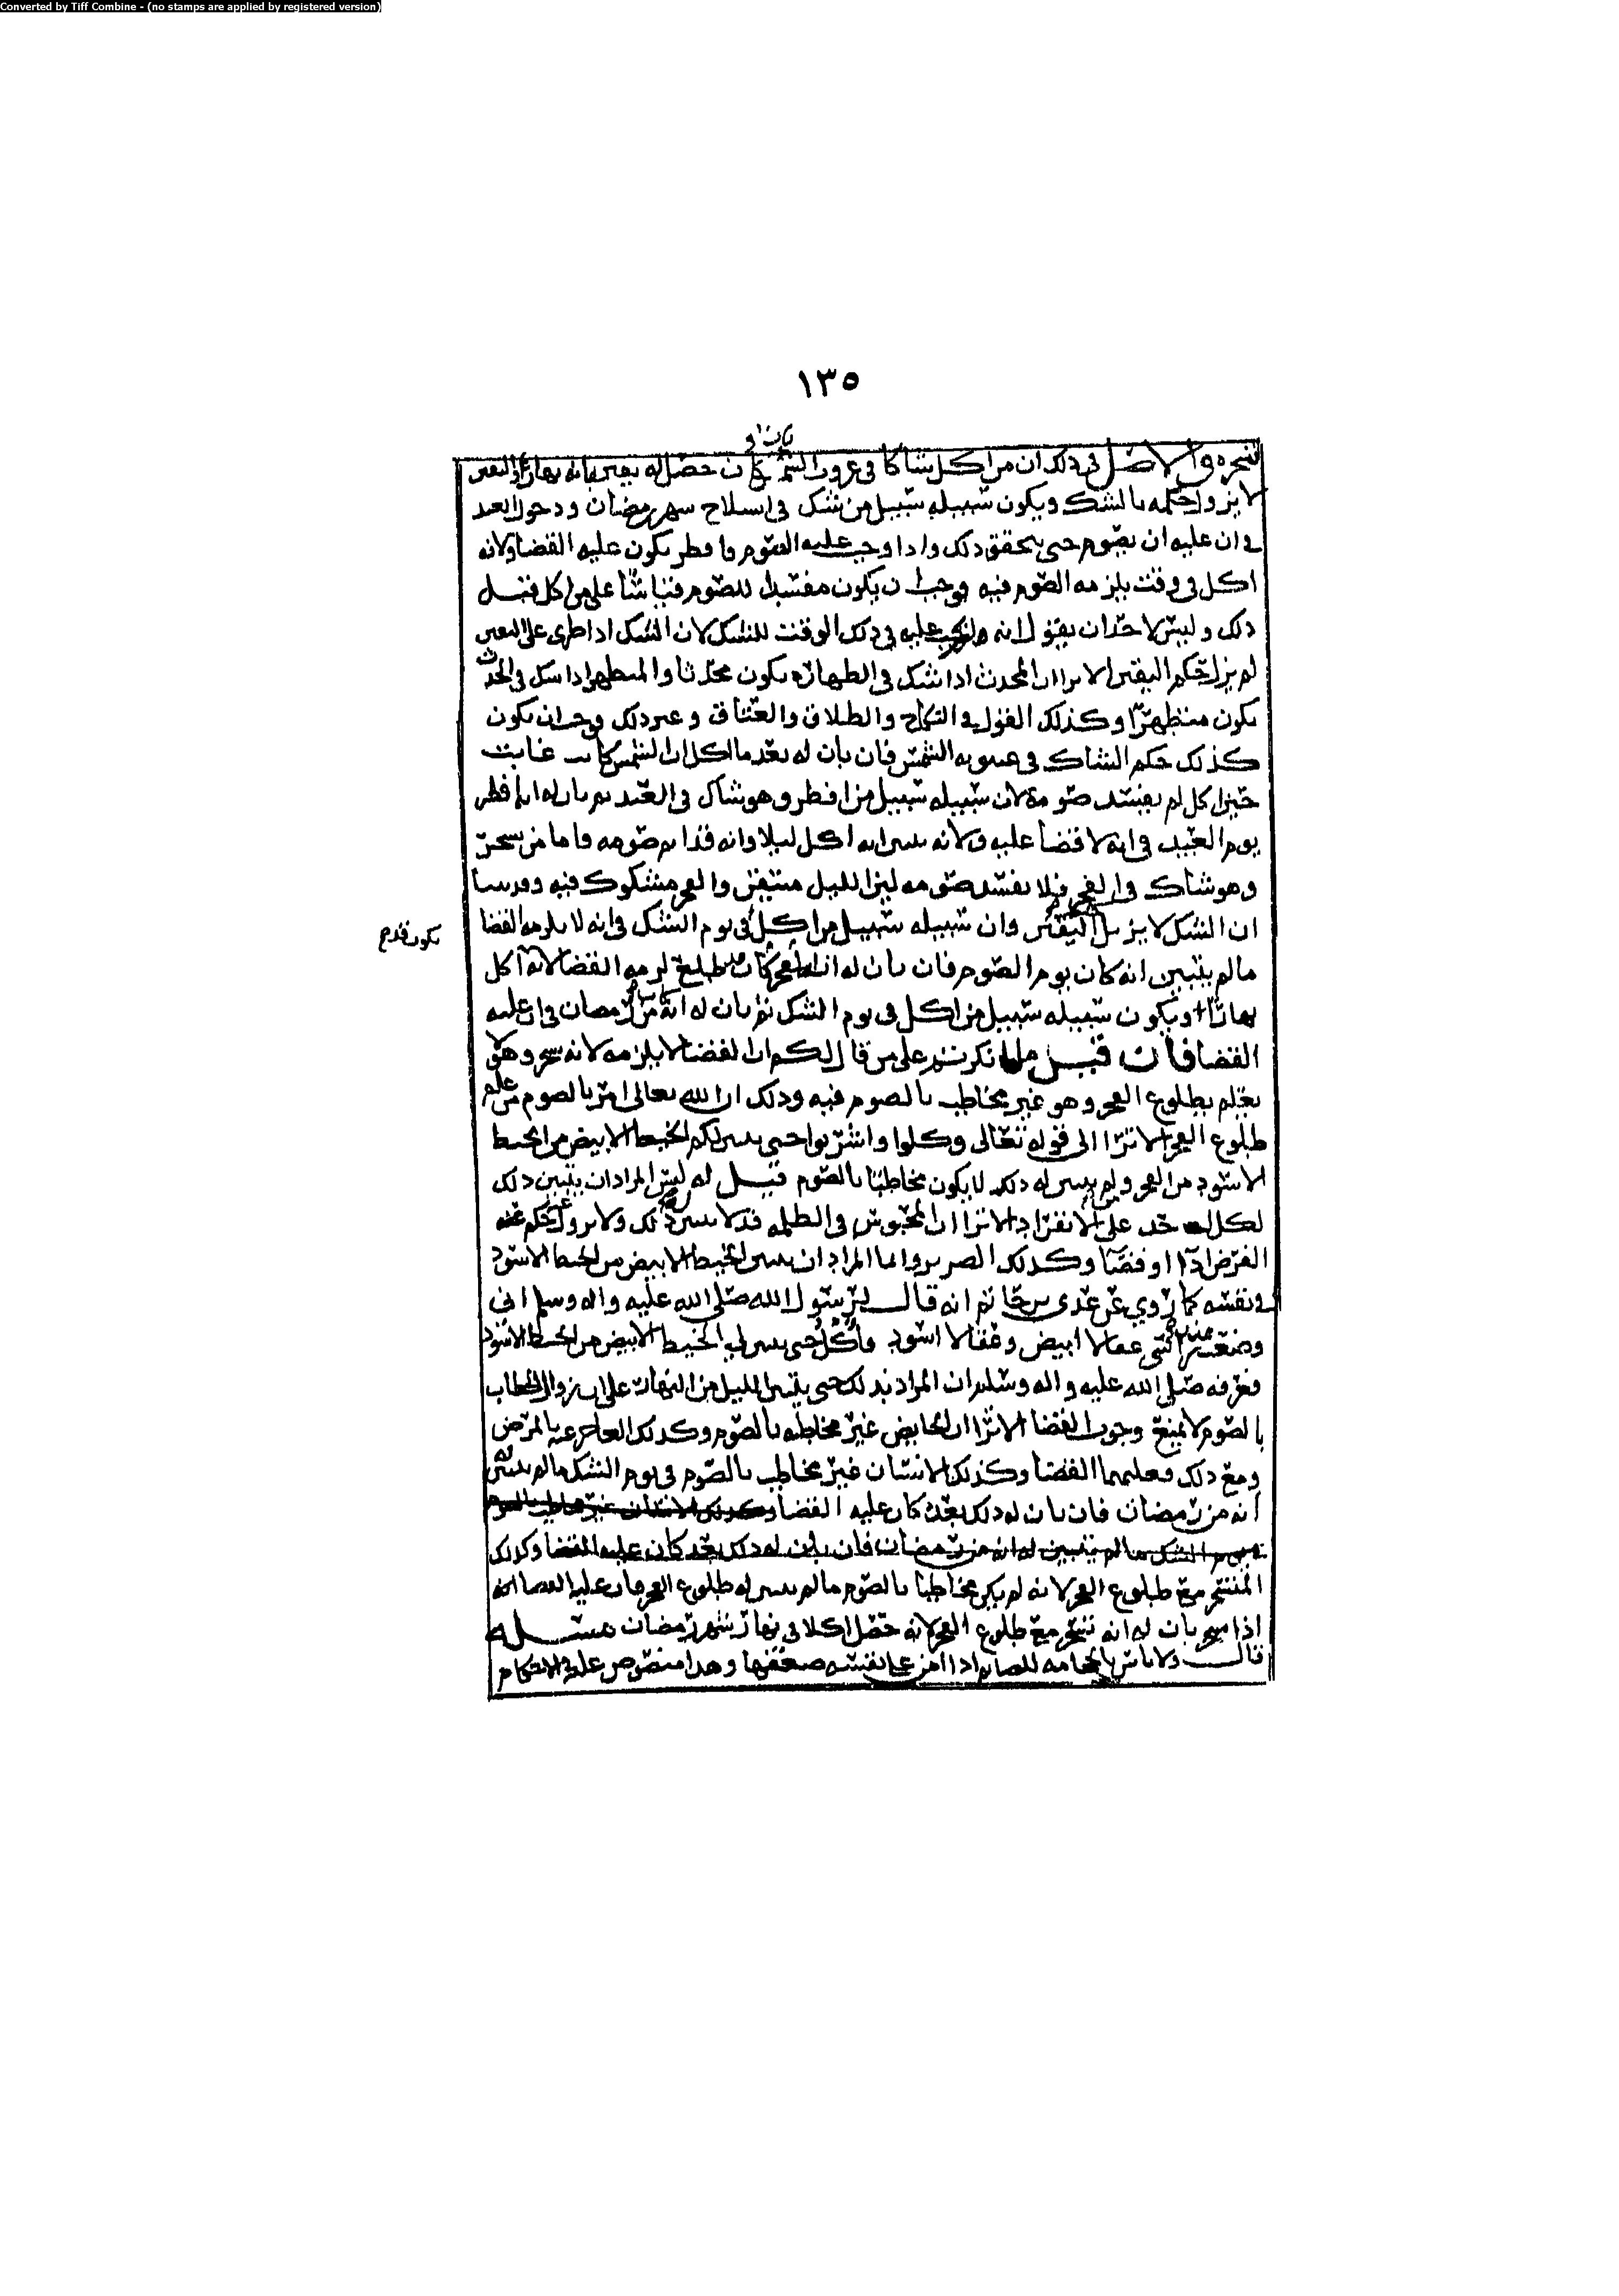 Converted by Tiff Combine - (no stamps are applied by registered version)
١٣٥
بان او
والاصل في ذلك ان من اكل شاكا في غروب الشمس كان حصل له يقين بانه نهار واليقين
لا يزول حكمه بالشك ويكون سبيله سبيل من شك في انسلاخ شهر رمضان ودخول العيد
في ان عليه ان يصوم حتى يتحقق ذلك واذا وجب عليه الصوم فافطر يكون عليه القضا ولانه
اكل في وقت يلزمه الصوم فيه فوجب ان يكون مفسدا للصوم قياسا على من اكل قبل
ذلك وليس لاحد ان يقول انه عليه في ذلك الوقت للشك لان الشك اذا طرى على اليقين
لم يزل حكم اليقين الا ترا ان المحدث اذا شك في الطهارة يكون محدثا والمتطهر اذا شك في الحدث
يكون متطهرا وكذلك القول في النكاح والطلاق والعتاق وغير ذلك فوجب ان يكون
كذلك حكم الشاك في غيبوبة الشمس فان بان له بعد ما اكل ان الشمس كانت غابت
حين اكل لم يفسد صومه لان سبيله سبيل من افطر وهو شاك في العيد ثم بان له انه افطر
يوم العيد في انه لا قضا عليه ولانه تبين انه اكل ليلا وانه قد اتم صومه فاما من تسحر
وهو شاك في الفجر فلا يفسد صومه لان الليل متيقن والفجر مشكوك فيه وقد بينا
ان الشك لا يزيل اليقين وان سبيله سبيل من اكل في يوم الشك في انه لا يلزمه القضا
يكون قدم
ما لم يتبين انه كان يوم الصوم فان بان له ان الفجر كان طلع لزمه القضا لانه اكل
نهارا ويكون سبيله سبيل من اكل في يوم الشك ثم بان له انه من رمضان في ان عليه
القضا فان قيل ما انكرتم على من قال لكم ان القضا لا يلزمه لانه تسحر وهو لا
يعلم بطلوع الفجر وهو غير مخاطب بالصوم فيه وذلك ان الله تعالى امر بالصوم من علم
طلوع الفجر الا ترا الى قوله تعالى وكلوا واشربوا حتى يتبين لكم الخيط الابيض من الخيط
الاسود من الفجر ومن لم يتبين له ذلك لا يكون مخاطبا بالصوم قيل له ليس المراد ان يتبين ذلك
لكل احد على الانفراد الا ترا ان المحبوس في الظلمه قد لا يتبين ذلك ولا يزول عنه حكم
الفرض ادآ او قضآ وكذلك الضرير وانما المراد ان يتبين الخيط الابيض من الخيط الاسود
في نفسه كما روي عن عدي بن حاتم انه قال لرسول الله صلى الله عليه واله وسلم اني
وضعت عند راسي عقالا ابيض وعقالا اسود فآكل حتى يتبين لي الخيط الابيض من الخيط الاسود
فعرفه صلى الله عليه واله وسلم ان المراد بذلك حتى يتبين الليل من النهار على ان زوال الخطاب
بالصوم لا يمنع وجوب القضا الا ترا ان الحايض غير مخاطبه بالصوم وكذلك العاجز عنه بالمرض
ومع ذلك فعليهما القضا وكذلك الانسان غير مخاطب بالصوم في يوم الشك ما لم يتبين له
انه من رمضان فان بان له ذلك بعد كان عليه القضا وكذلك الانسان غير مخاطب بالصوم
في يوم الشك ما لم يتبين له انه من رمضان فان بان له ذلك بعد كان عليه القضا وكذلك
المتسحر مع طلوع الفجر لانه لم يكن مخاطبا بالصوم ما لم يتبين له طلوع الفجر فان عليه القضا
اذا بان له انه تسحر مع طلوع الفجر لانه حصل اكلا في نهار شهر رمضان مسئله
قال ولا باس بالحجامه للصايم اذا امن على نفسه ضعفها وهذا منصوص عليه في الاحكام